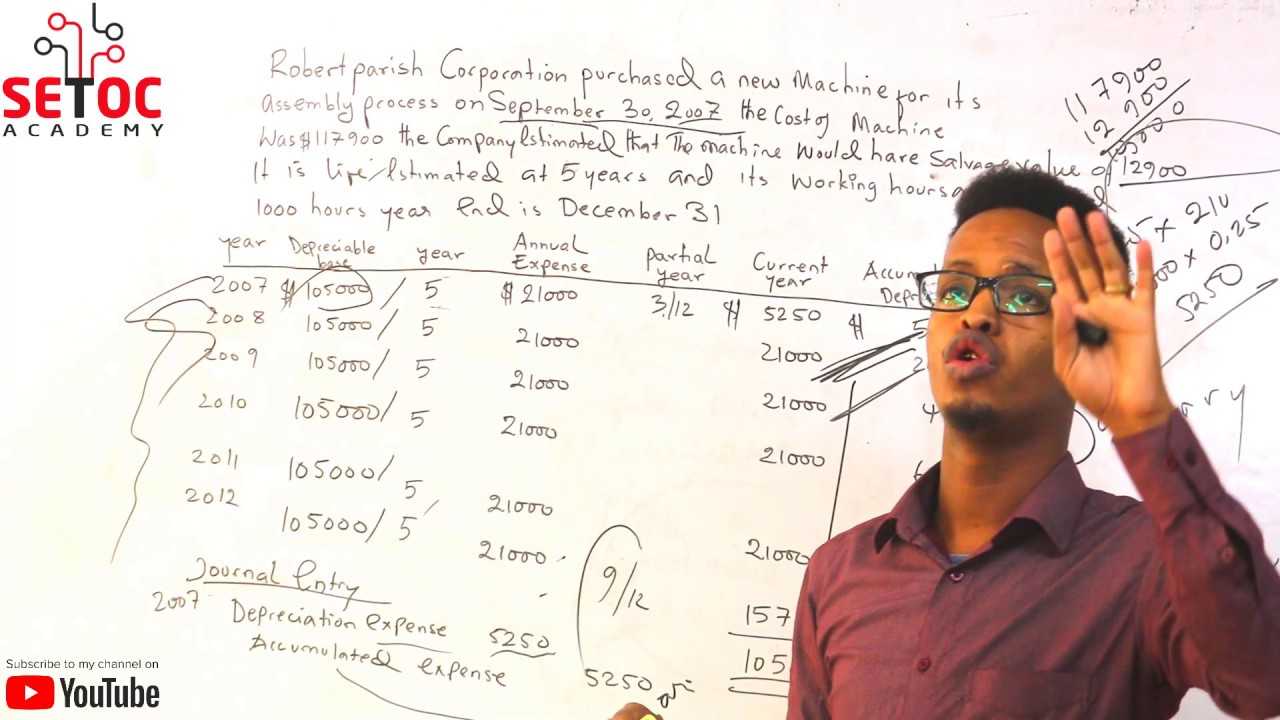 SETOC
ACADEMY
Robert parish Corporation purchased a new Machine for its
assembly process on September 30, 2007 the Cost of Machine
Was $117900 the Company Estimated that The machine Would have Salvage value of 12900
It is life Estimated at 5 years and its Working hours
1000 hours year End is December 31
117900
12900
210
x 0,25
5250
year Depreciable base year Annual Expense Partial year Current year
2007 $ 105000 / 5 $ 21000 3/12 $ 5250 $
2008 105000 / 5 21000 21000
2009 105000 / 5 21000 21000
2010 105000 / 5 21000 21000
2011 105000 / 5 21000 21000
2012 105000 / 5 21000 157
9/12
105
Journal Entry
2007 Depreciation expense 5250
Accumulated expense 5250
Subscribe to my channel on
YouTube